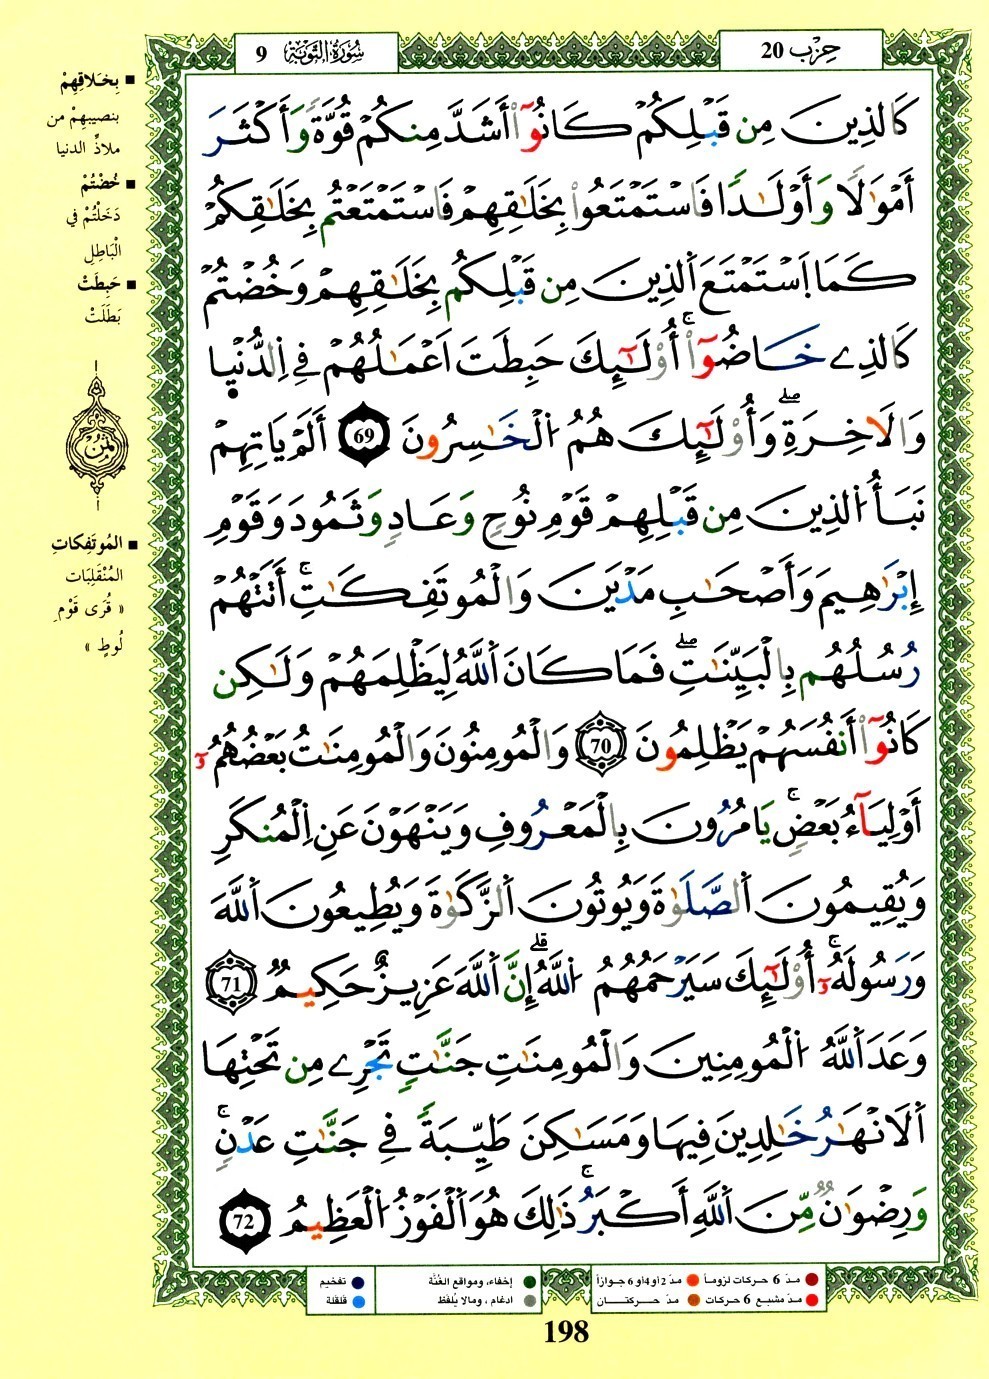 حِزْب 20
سُورَةُ التَّوْبَةِ 9
كَالذِينَ مِن قَبْلِكُمْ كَانُوٓاْ أَشَدَّ مِنكُمْ قُوَّةً وَأَكْثَرَ
أَمْوَٰلًا وَأَوْلَٰدًا فَاسْتَمْتَعُواْ بِخَلَٰقِهِمْ فَاسْتَمْتَعْتُم بِخَلَٰقِكُمْ
كَمَا اَسْتَمْتَعَ اَلذِينَ مِن قَبْلِكُم بِخَلَٰقِهِمْ وَخُضْتُمْ
كَالذِے خَاضُوٓاْۚ أُوْلَٰٓئِكَ حَبِطَتَ اَعْمَٰلُهُمْ فِے اِلدُّنْي۪ا
وَالَاخِرَةِۖ وَأُوْلَٰٓئِكَ هُمُ اُلْخَٰسِرُونَ 69 أَلَمْ يَاتِهِمْ
نَبَأُ اُلذِينَ مِن قَبْلِهِمْ قَوْمِ نُوحٍ وَعَادٍ وَثَمُودَ وَقَوْمِ
إِبْرَٰهِيمَ وَأَصْحَٰبِ مَدْيَنَ وَالْمُوتَفِكَٰتِۚ أَتَتْهُمْ
رُسُلُهُم بِالْبَيِّنَٰتِۖ فَمَا كَانَ اَللَّهُ لِيَظْلِمَهُمْ وَلَٰكِن
كَانُوٓاْ أَنفُسَهُمْ يَظْلِمُونَ 70 وَالْمُومِنُونَ وَالْمُومِنَٰتُ بَعْضُهُمُۥٓ
أَوْلِيَآءُ بَعْضٍۚ يَامُرُونَ بِالْمَعْرُوفِ وَيَنْهَوْنَ عَنِ اِلْمُنكَرِ
وَيُقِيمُونَ اَلصَّلَوٰةَ وَيُوتُونَ اَلزَّكَوٰةَ وَيُطِيعُونَ اَللَّهَ
وَرَسُولَهُۥٓۚ أُوْلَٰٓئِكَ سَيَرْحَمُهُمُ اُللَّهُۗ إِنَّ اَللَّهَ عَزِيزٌ حَكِيمٌ 71
وَعَدَ اَللَّهُ اُلْمُومِنِينَ وَالْمُومِنَٰتِ جَنَّٰتٍ تَجْرِے مِن تَحْتِهَا
اَلَانْهَٰرُ خَٰلِدِينَ فِيهَا وَمَسَٰكِنَ طَيِّبَةً فِے جَنَّٰتِ عَدْنٍۚ
وَرِضْوَٰنٌ مِّنَ اَللَّهِ أَكْبَرُۚ ذَٰلِكَ هُوَ اَلْفَوْزُ اُلْعَظِيمُ 72
بِخَلَاقِهِمْ
بنصيبهِمْ من
ملاذِّ الدنيا
خُضْتُمْ
دَخَلْتُمْ في
الْبَاطِلِ
حَبِطَتْ
بَطَلَتْ
ثمن
المُوتَفِكاتِ
المُنْقَلِبَات
« قُرَى قَوْمِ
لُوطٍ »
مدّ 6 حركات لزوماً
مدّ 2 أو 4 أو 6 جوازاً
مدّ مشبع 6 حركات
مدّ حركتــان
إخفاء، ومواقع الغُنَّة
ادغام ، ومالا يُلفَظ
تفخيم
قلقلة
198